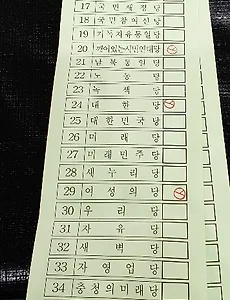 17 국민새정당
18 국민참여신당
19 기독자유통일당
20 깨어있는시민연대당
21 남북통일당
22 노동당
23 녹색당
24 대한당
25 대한민국당
26 미래당
27 미래민주당
28 새누리당
29 여성의당
30 우리당
31 자유당
32 새벽당
33 자영업당
34 충청의미래당